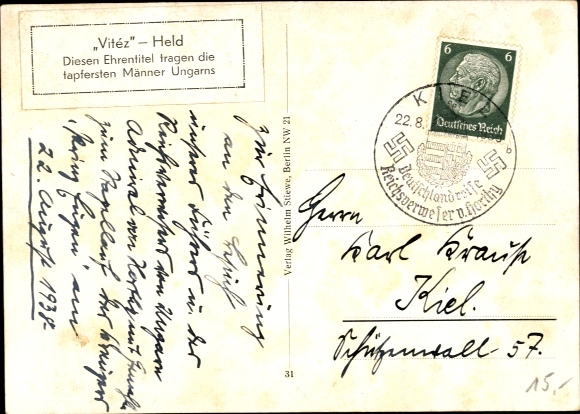 „Vitéz” – Held
Diesen Ehrentitel tragen die
tapfersten Männer Ungarns
Zur Erinnerung
an den Besuch
unseres Führers u. der
Reichsverwesers von Ungarn
Admiral von Horthy mit Gemahlin
zum Stapellauf des Kreuzers
„Prinz Eugen” am
22. August 1938.
Verlag Wilhelm Stiewe, Berlin NW 21
31
6 6
Deutsches Reich
KIEL
22.8.
b
Deutschlandreise
Reichsverweser v. Horthy
Herrn
Karl Krause
Kiel.
Schützenwall 57.
15,-